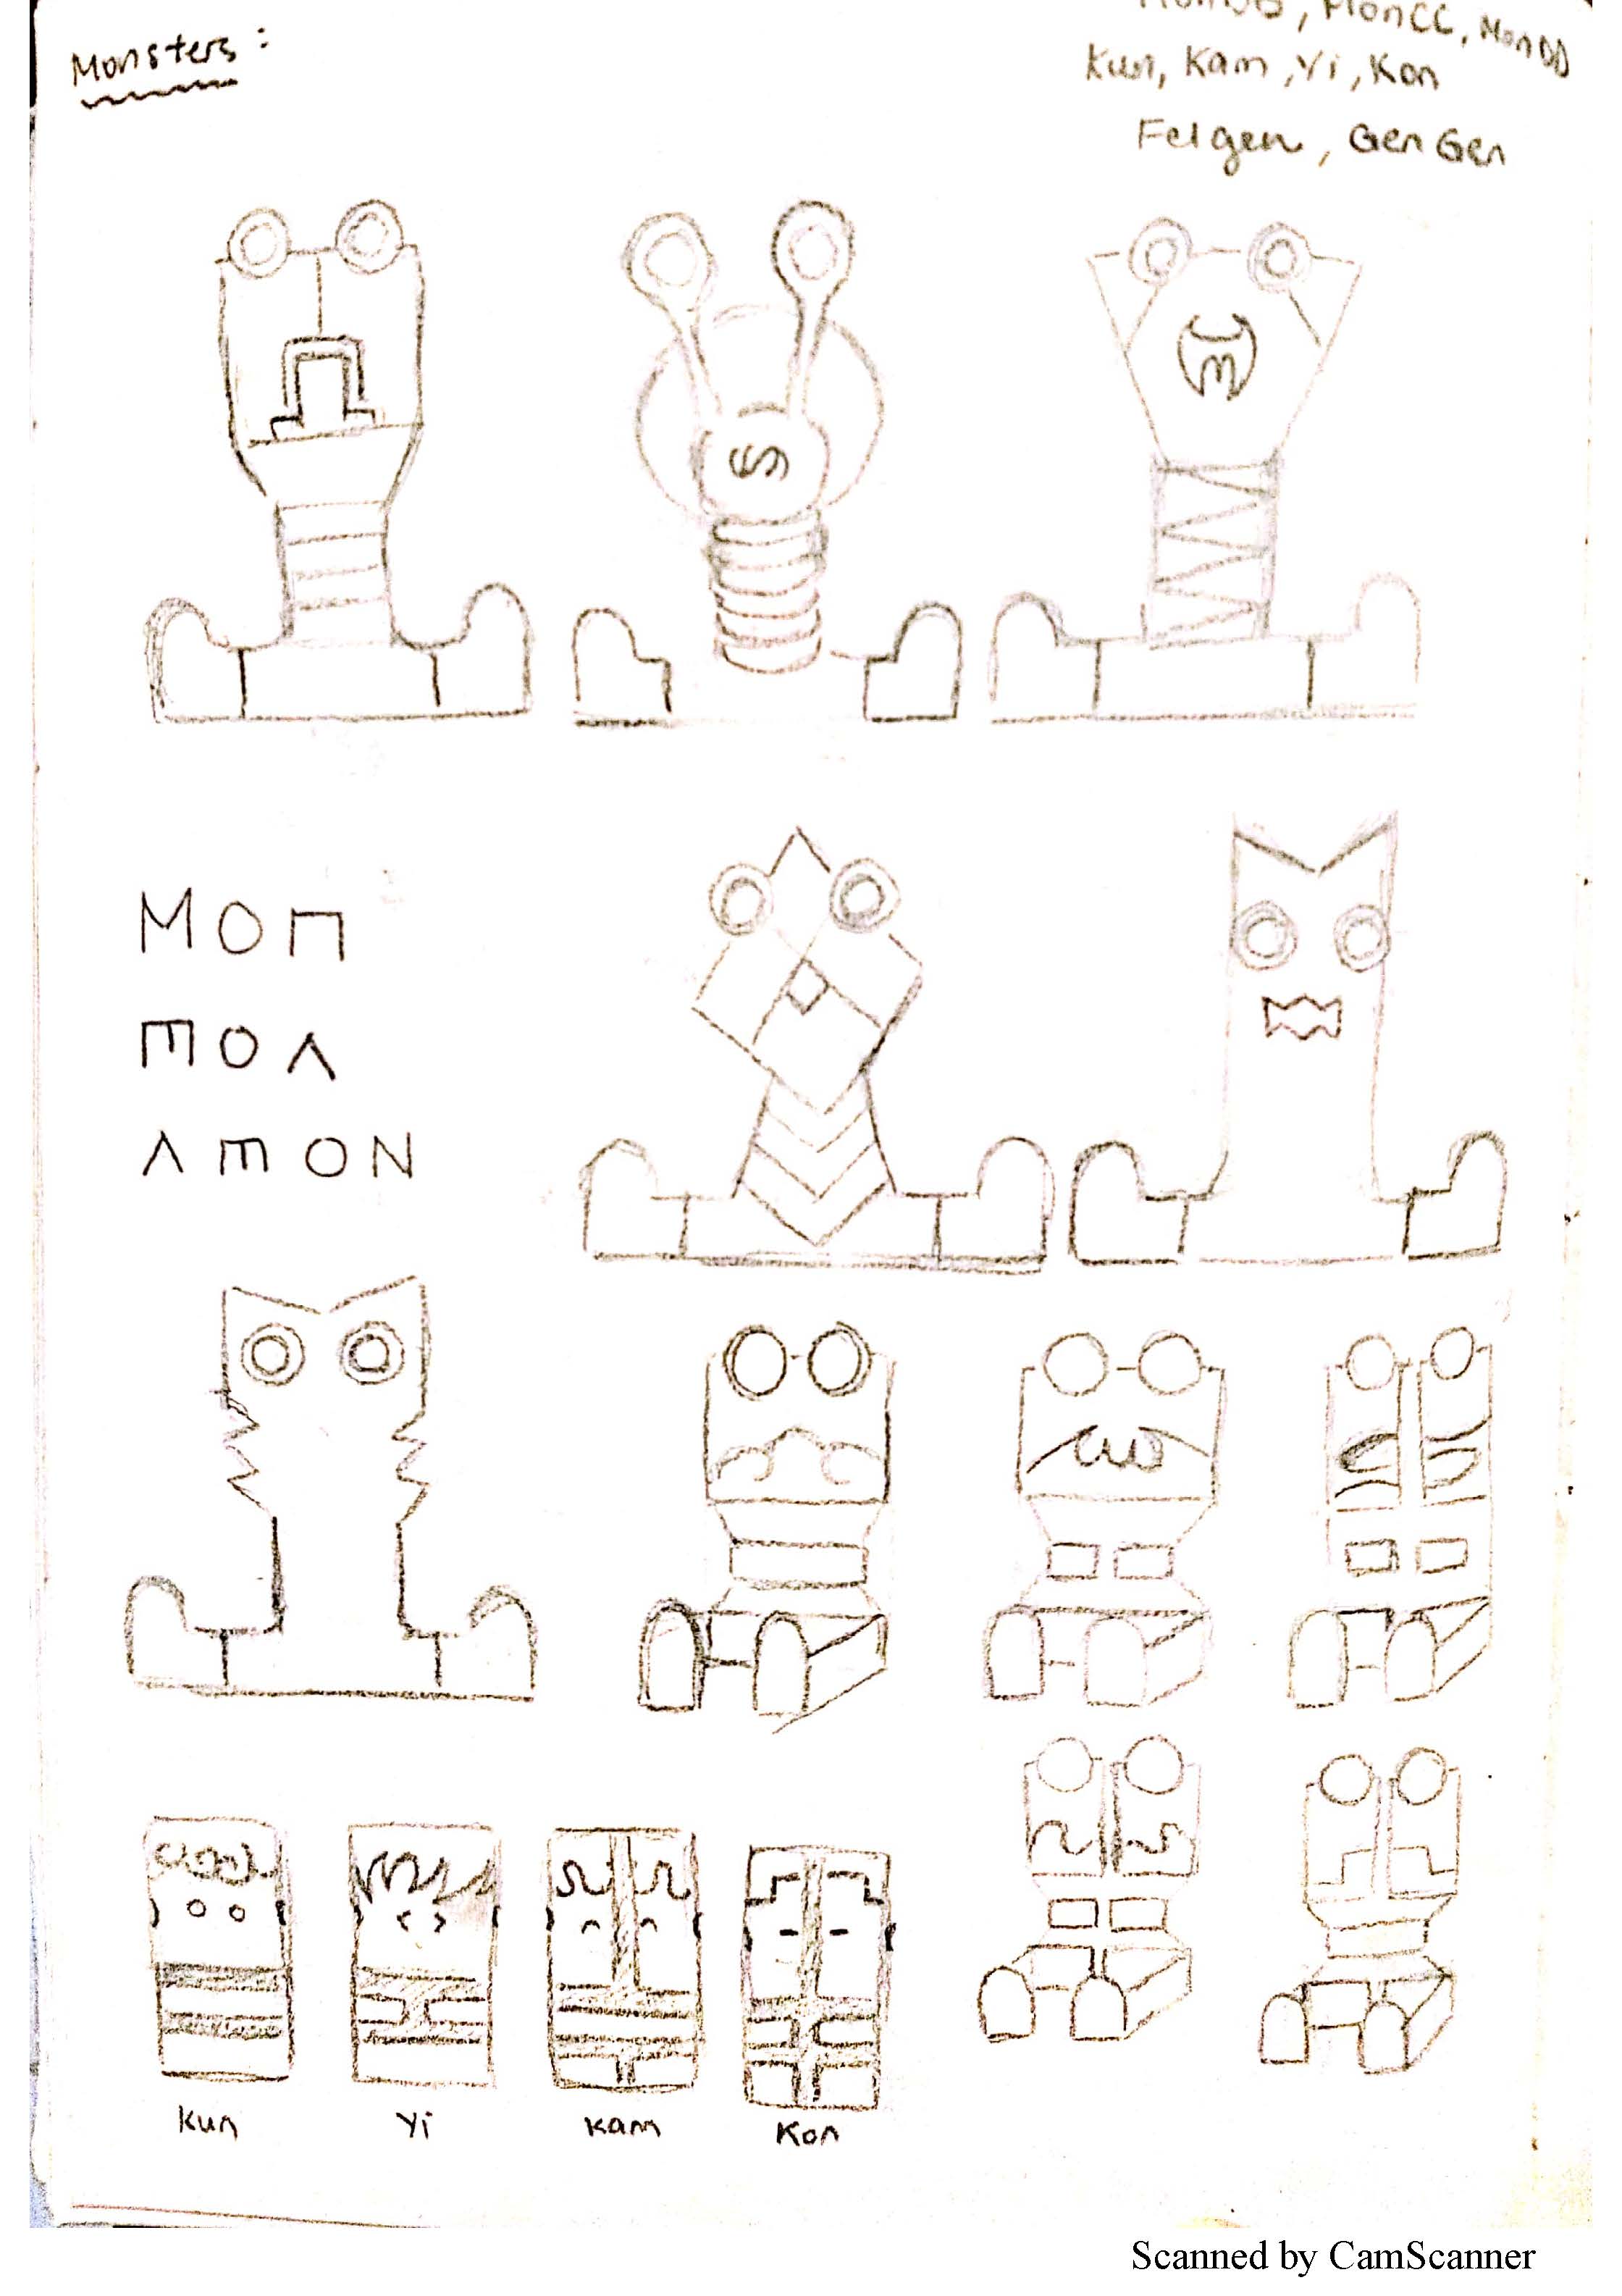 Monsters:
MonCC, MonDD
Kun, Kam, Yi, Kon
Felgen, GenGen
MOΠ
ꟺOΛ
ΛꟺON
Kun
Yi
Kam
Kon
Scanned by CamScanner